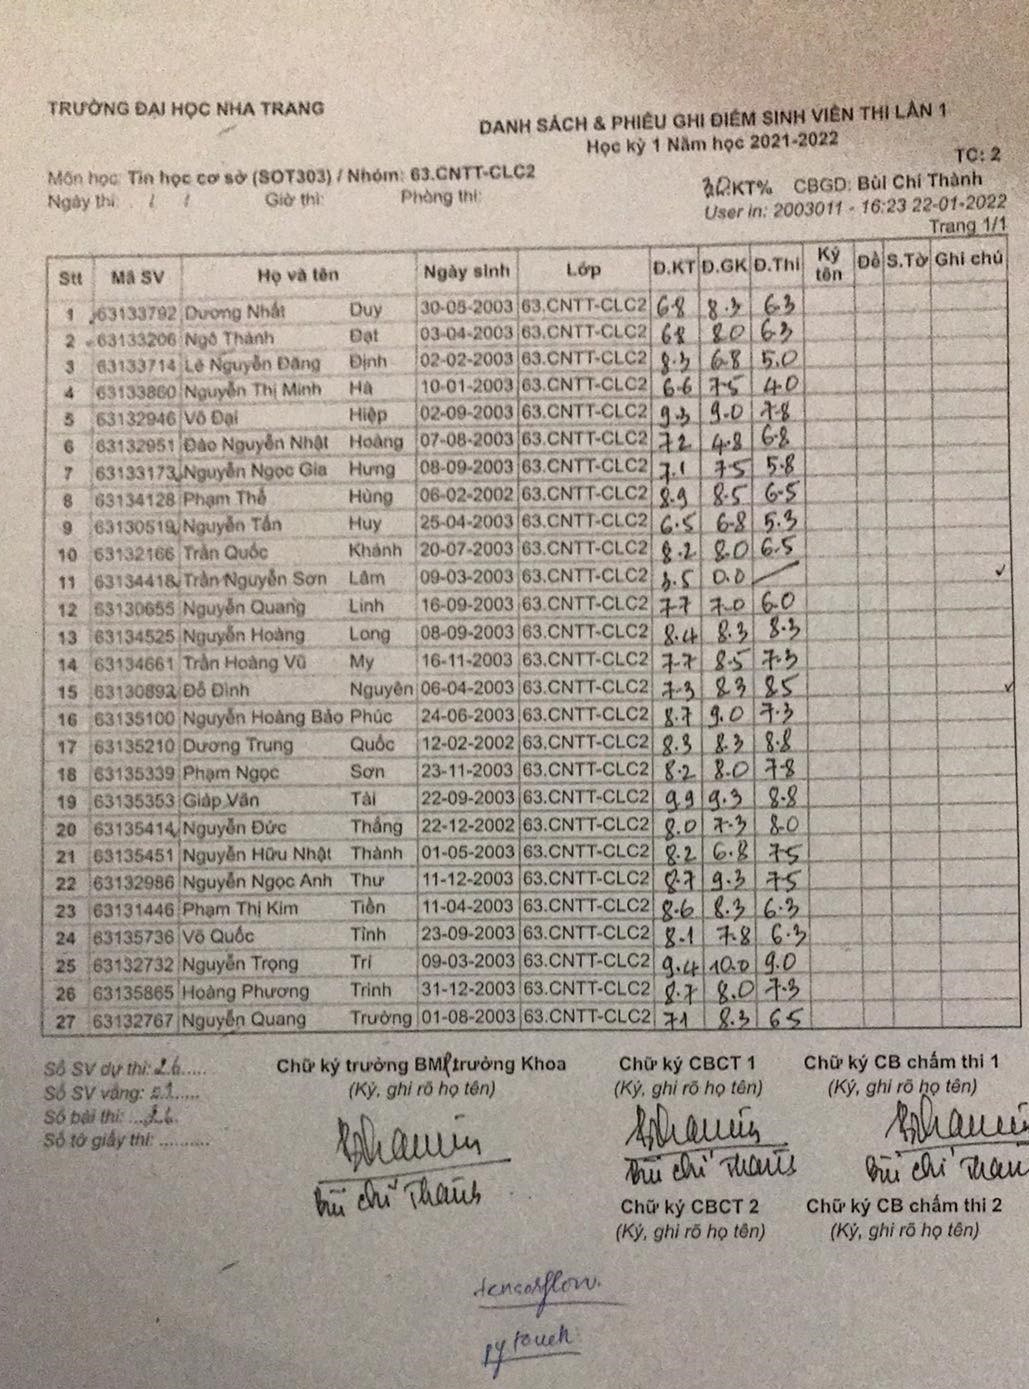 TRƯỜNG ĐẠI HỌC NHA TRANG
DANH SÁCH & PHIẾU GHI ĐIỂM SINH VIÊN THI LẦN 1
Học kỳ 1 Năm học 2021-2022
TC: 2
Môn học: Tin học cơ sở (SOT303) / Nhóm: 63.CNTT-CLC2
KT% CBGD: Bùi Chí Thành
Ngày thi: / / Giờ thi: Phòng thi:
User in: 2003011 - 16:23 22-01-2022
Trang 1/1
Stt Mã SV Họ và tên Ngày sinh Lớp Đ.KT Đ.GK Đ.Thi Ký tên Đề S.Tờ Ghi chú
1 63133792 Dương Nhất Duy 30-05-2003 63.CNTT-CLC2 6.8 8.3 6.3
2 63133206 Ngô Thành Đạt 03-04-2003 63.CNTT-CLC2 6.8 8.0 6.3
3 63133714 Lê Nguyễn Đăng Định 02-02-2003 63.CNTT-CLC2 8.3 6.8 5.0
4 63133860 Nguyễn Thị Minh Hà 10-01-2003 63.CNTT-CLC2 6.6 7.5 4.0
5 63132946 Võ Đại Hiệp 02-09-2003 63.CNTT-CLC2 9.3 9.0 7.8
6 63132951 Đào Nguyễn Nhật Hoàng 07-08-2003 63.CNTT-CLC2 7.2 4.8 6.8
7 63133173 Nguyễn Ngọc Gia Hưng 08-09-2003 63.CNTT-CLC2 7.1 7.5 5.8
8 63134128 Phạm Thế Hùng 06-02-2002 63.CNTT-CLC2 8.9 8.5 6.5
9 63130519 Nguyễn Tấn Huy 25-04-2003 63.CNTT-CLC2 6.5 6.8 5.3
10 63132166 Trần Quốc Khánh 20-07-2003 63.CNTT-CLC2 8.2 8.0 6.5
11 63134418 Trần Nguyễn Sơn Lâm 09-03-2003 63.CNTT-CLC2 3.5 0.0 ✓
12 63130655 Nguyễn Quang Linh 16-09-2003 63.CNTT-CLC2 7.7 7.0 6.0
13 63134525 Nguyễn Hoàng Long 08-09-2003 63.CNTT-CLC2 8.4 8.3 8.3
14 63134661 Trần Hoàng Vũ My 16-11-2003 63.CNTT-CLC2 7.7 8.5 7.3
15 63130892 Đỗ Đình Nguyên 06-04-2003 63.CNTT-CLC2 7.3 8.3 8.5 ✓
16 63135100 Nguyễn Hoàng Bảo Phúc 24-06-2003 63.CNTT-CLC2 8.7 9.0 7.3
17 63135210 Dương Trung Quốc 12-02-2002 63.CNTT-CLC2 8.3 8.3 8.8
18 63135339 Phạm Ngọc Sơn 23-11-2003 63.CNTT-CLC2 8.2 8.0 7.8
19 63135353 Giáp Văn Tài 22-09-2003 63.CNTT-CLC2 9.9 9.3 8.8
20 63135414 Nguyễn Đức Thắng 22-12-2002 63.CNTT-CLC2 8.0 7.3 8.0
21 63135451 Nguyễn Hữu Nhật Thành 01-05-2003 63.CNTT-CLC2 8.2 6.8 7.5
22 63132986 Nguyễn Ngọc Anh Thư 11-12-2003 63.CNTT-CLC2 8.7 9.3 7.5
23 63131446 Phạm Thị Kim Tiền 11-04-2003 63.CNTT-CLC2 8.6 8.3 6.3
24 63135736 Võ Quốc Tỉnh 23-09-2003 63.CNTT-CLC2 8.1 7.8 6.3
25 63132732 Nguyễn Trọng Trí 09-03-2003 63.CNTT-CLC2 9.4 10.0 9.0
26 63135865 Hoàng Phương Trinh 31-12-2003 63.CNTT-CLC2 8.7 8.0 7.3
27 63132767 Nguyễn Quang Trường 01-08-2003 63.CNTT-CLC2 7.1 8.3 6.5
Số SV dự thi: 26 Chữ ký trưởng BM/trưởng Khoa Chữ ký CBCT 1 Chữ ký CB chấm thi 1
Số SV vắng: 01 (Ký, ghi rõ họ tên) (Ký, ghi rõ họ tên) (Ký, ghi rõ họ tên)
Số bài thi: 26
Số tờ giấy thi: ..........
Bùi Chí Thành Bùi Chí Thành Bùi Chí Thàn
Chữ ký CBCT 2 Chữ ký CB chấm thi 2
(Ký, ghi rõ họ tên) (Ký, ghi rõ họ tên)
tensorflow.
pytouch